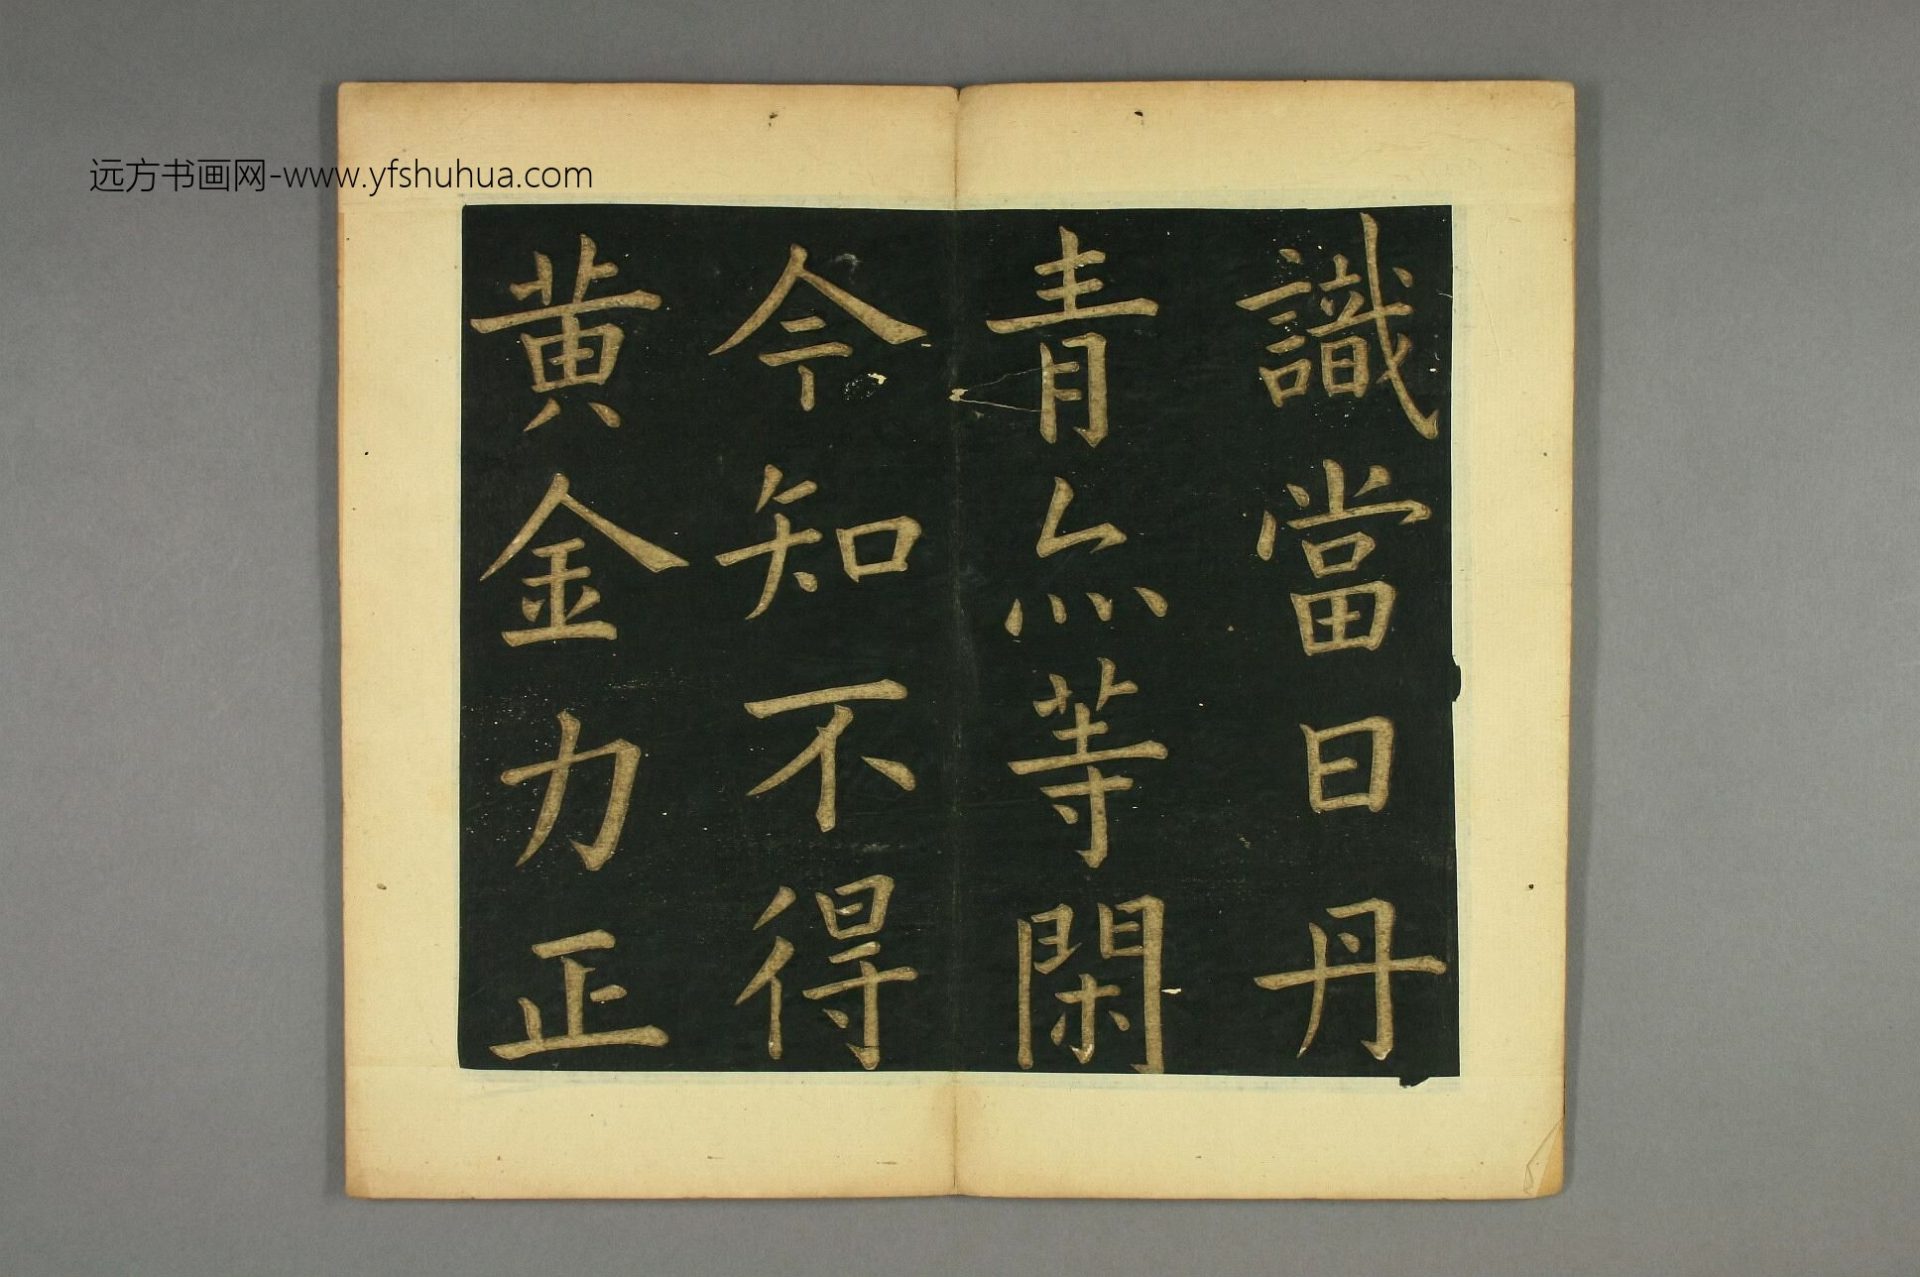 远方书画网-www.yfshuhua.com
識當日丹
青𠂊灬等閑
今知不得
黄金力正